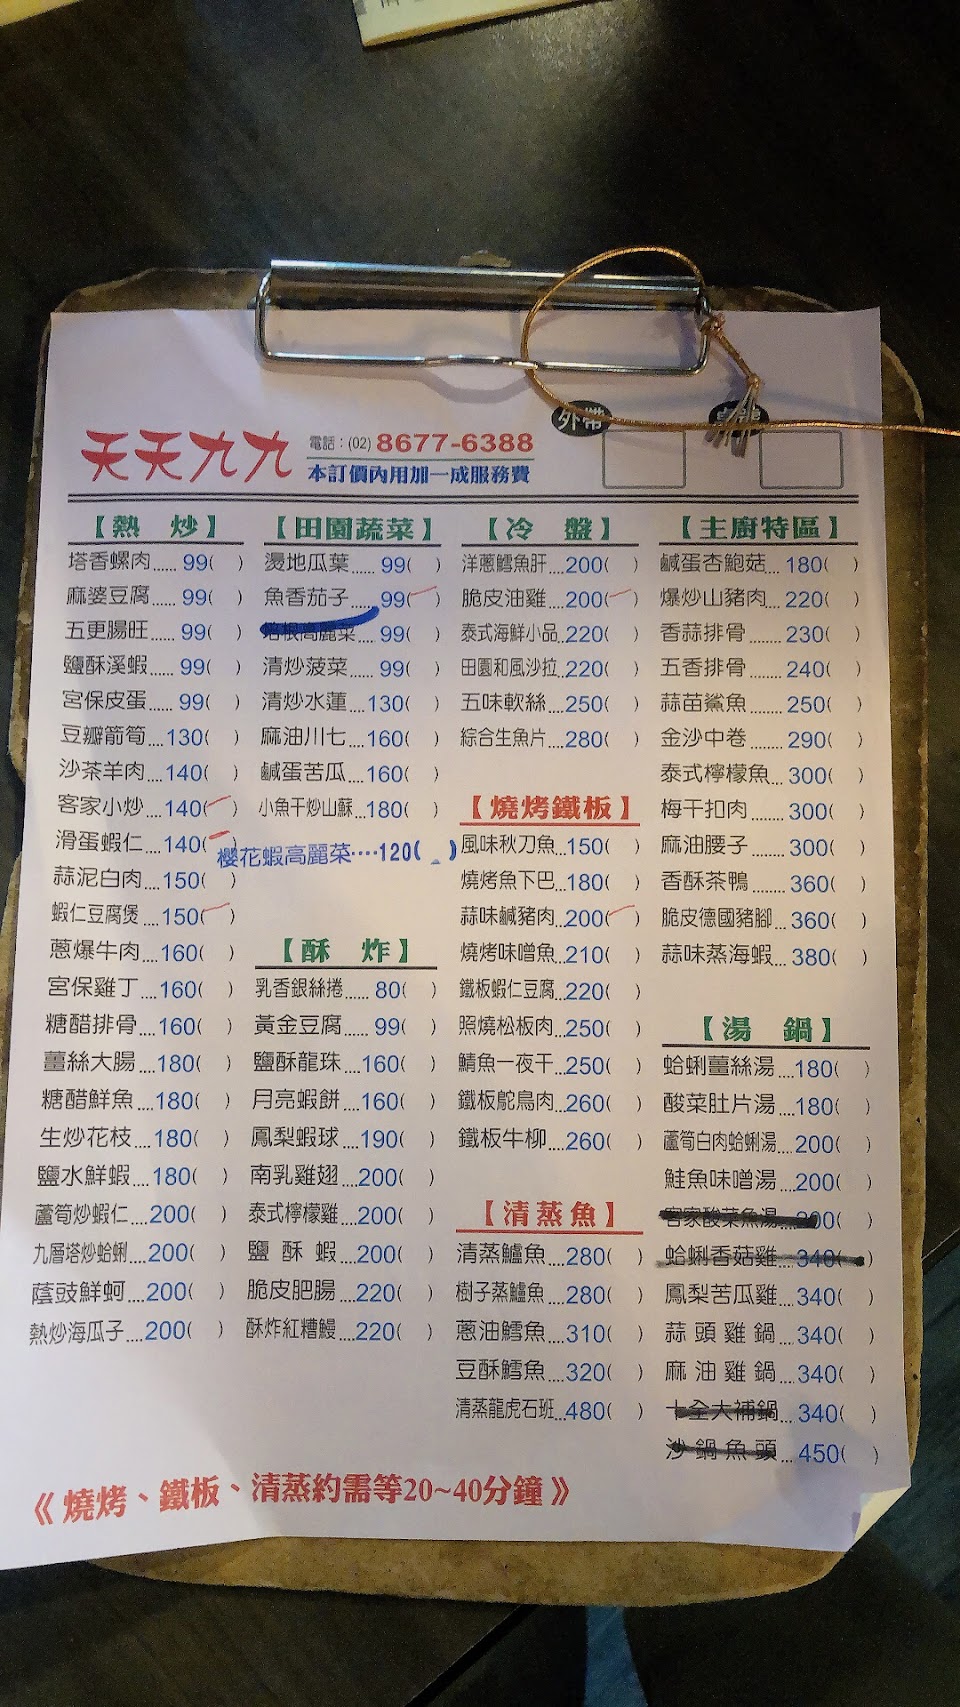 天天九九
電話：(02) 8677-6388
本訂價內用加一成服務費
外帶
【熱 炒】
塔香螺肉......99( )
麻婆豆腐......99( )
五更腸旺......99( )
鹽酥溪蝦......99( )
宮保皮蛋......99( )
豆瓣箭筍....130( )
沙茶羊肉....140( )
客家小炒....140( )
滑蛋蝦仁....140( )
蒜泥白肉....150( )
蝦仁豆腐煲....150( )
蔥爆牛肉....160( )
宮保雞丁....160( )
糖醋排骨....160( )
薑絲大腸....180( )
糖醋鮮魚....180( )
生炒花枝....180( )
鹽水鮮蝦....180( )
蘆筍炒蝦仁....200( )
九層塔炒蛤蜊....200( )
蔭豉鮮蚵....200( )
熱炒海瓜子....200( )
【田園蔬菜】
燙地瓜葉......99( )
魚香茄子......99( )
培根高麗菜....99( )
清炒菠菜......99( )
清炒水蓮....130( )
麻油川七....160( )
鹹蛋苦瓜....160( )
小魚干炒山蘇....180( )
櫻花蝦高麗菜····120( )
【酥 炸】
乳香銀絲捲......80( )
黃金豆腐......99( )
鹽酥龍珠....160( )
月亮蝦餅....160( )
鳳梨蝦球....190( )
南乳雞翅....200( )
泰式檸檬雞....200( )
鹽 酥 蝦....200( )
脆皮肥腸....220( )
酥炸紅糟鰻....220( )
【冷 盤】
洋蔥鱈魚肝....200( )
脆皮油雞....200( )
泰式海鮮小品..220( )
田園和風沙拉..220( )
五味軟絲....250( )
綜合生魚片....280( )
【燒烤鐵板】
風味秋刀魚...150( )
燒烤魚下巴....180( )
蒜味鹹豬肉....200( )
燒烤味噌魚....210( )
鐵板蝦仁豆腐..220( )
照燒松板肉....250( )
鯖魚一夜干...250( )
鐵板鴕鳥肉....260( )
鐵板牛柳....260( )
【清蒸魚】
清蒸鱸魚....280( )
樹子蒸鱸魚....280( )
蔥油鱈魚....310( )
豆酥鱈魚....320( )
清蒸龍虎石斑...480( )
【主廚特區】
鹹蛋杏鮑菇....180( )
爆炒山豬肉....220( )
香蒜排骨........230( )
五香排骨........240( )
蒜苗鯊魚........250( )
金沙中卷........290( )
泰式檸檬魚....300( )
梅干扣肉........300( )
麻油腰子........300( )
香酥茶鴨........360( )
脆皮德國豬腳...360( )
蒜味蒸海蝦....380( )
【湯 鍋】
蛤蜊薑絲湯....180( )
酸菜肚片湯....180( )
蘆筍白肉蛤蜊湯...200( )
鮭魚味噌湯....200( )
客家酸菜魚湯...200( )
蛤蜊香菇雞....340( )
鳳梨苦瓜雞....340( )
蒜頭雞鍋....340( )
麻油雞鍋....340( )
十全大補鍋...340( )
沙鍋魚頭...450( )
《燒烤、鐵板、清蒸約需等20~40分鐘》